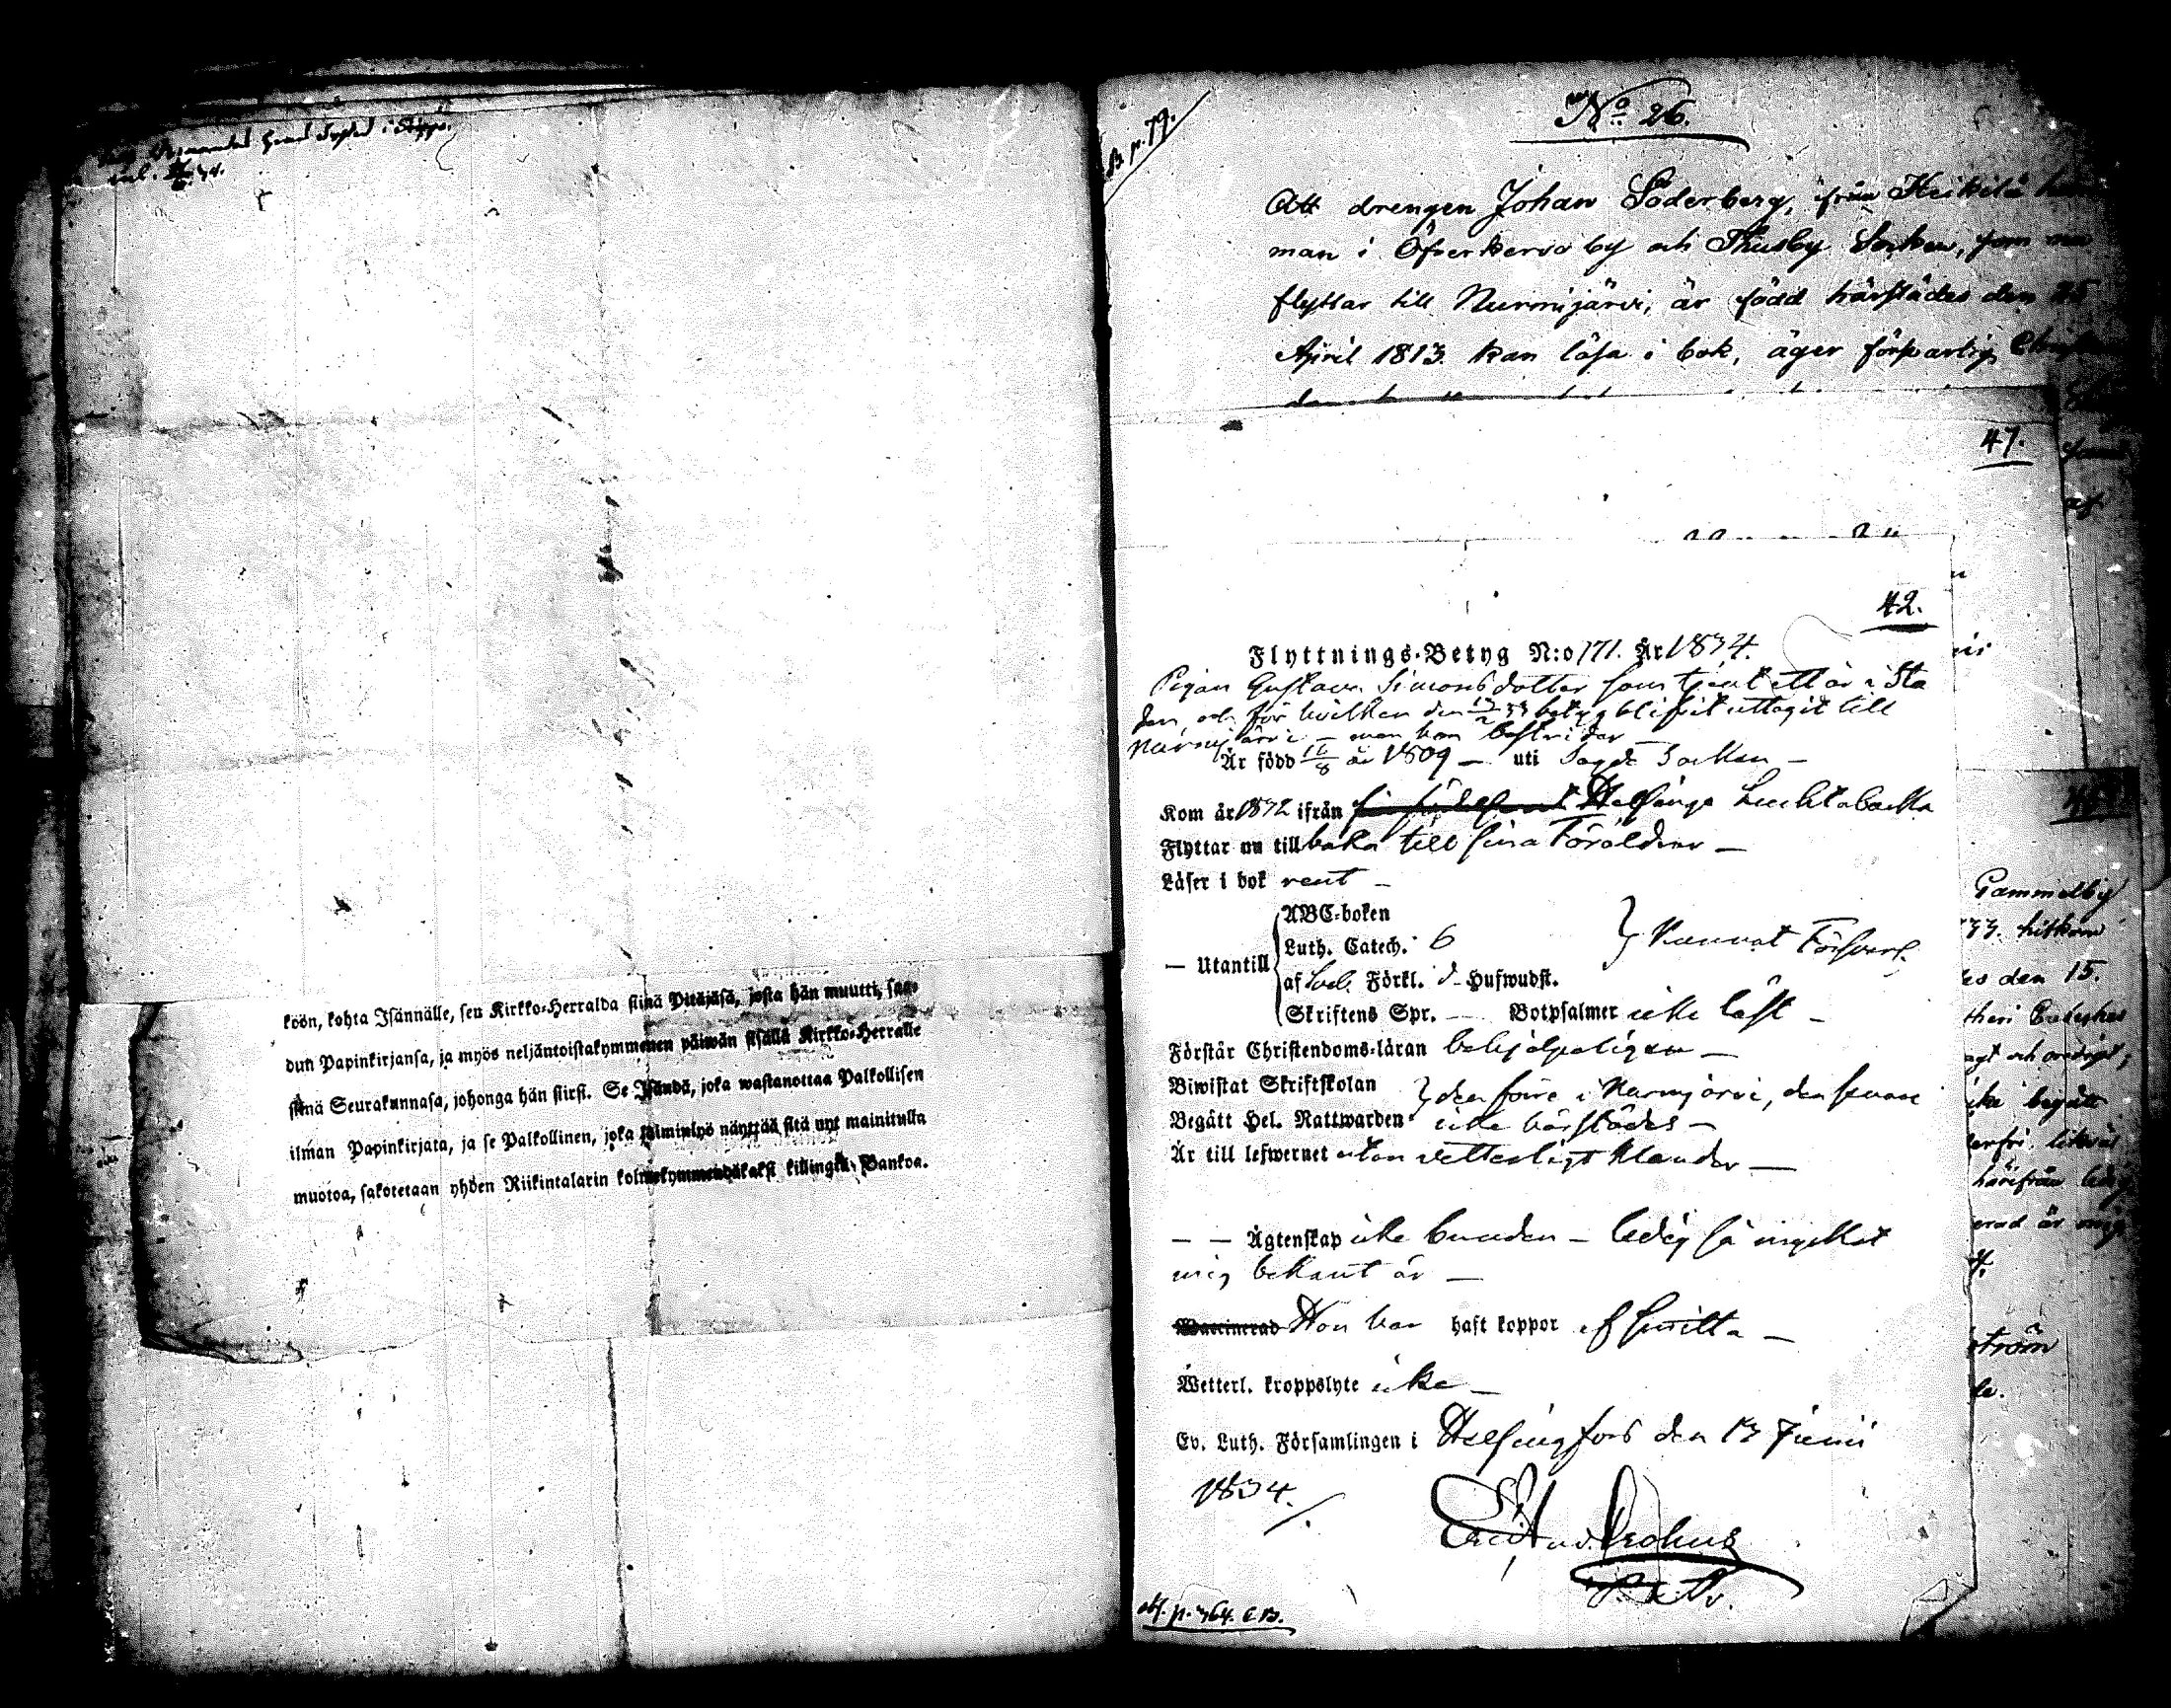 köön, kohta Isännälle, sen Kirkko-Herralda siinä Pitäjäsä, josta hän muutti, saa-
dun Papinkirjansa, ja myös neljäntoistakymmenen päiwän sisällä Kirkko-Herralle
siinä Seurakunnasa, johonga hän siirsi. Se Isändä, joka wastanottaa Palkollisen
ilman Papinkirjata, ja se Palkollinen, joka laiminlyö näyttää sitä nyt mainitulla
muotoa, sakotetaan yhden Riikintalarin kolmekymmendäkaksi killingiä Bankoa.
B. p. 79.
No 26.
Att drengen Johan Söderberg, från Heikilä
man i Öfverkervo by och Thusby Socken, som nu
flyttar till Nurmijärvi, är född härstädes den 25
April 1813 kan läsa i bok, äger försvarlig
47.
42.
Flyttnings-Betyg N:o 171. År 1834.
Pigan Gustava Simonsdotter som tjent ett år i Sta
den och för hvilken den betyg blifvit uttagit till
Nurmijärvi – men hon bestrider
Är född 16/8 år 1809 — uti Sagde Socken –
Kom år 1832 ifrån Helsinge Luchtabacka
Flyttar nu till baka till sina Föräldrar –
Läser i bok rent –
— Utantill
ABC-boken
Luth. Catech. 6
} Kunnat Försvarl.
af Sveb. Förkl. d. Hufwudst.
Skriftens Spr. — Botpsalmer icke läst –
Förstår Christendoms-läran behjelpeligen —
Biwistat Skriftskolan
} den förre i Nurmijärvi, den senare
Begått Hel. Nattwarden icke härstädes –
Är till lefwernet utan vetterligt klander —
— — Ägtenskap icke bunden – ledig så mycket
mig bekant är —
Waccinerad Hon har haft koppor af smitta –
Wetterl. kroppslyte icke –
Ev. Luth. Församlingen i Helsingfors den 13 Junii
1834.
Gammelby
33. hitkom
den 15.
härifrån
ström
obs. p. 364. C.B.